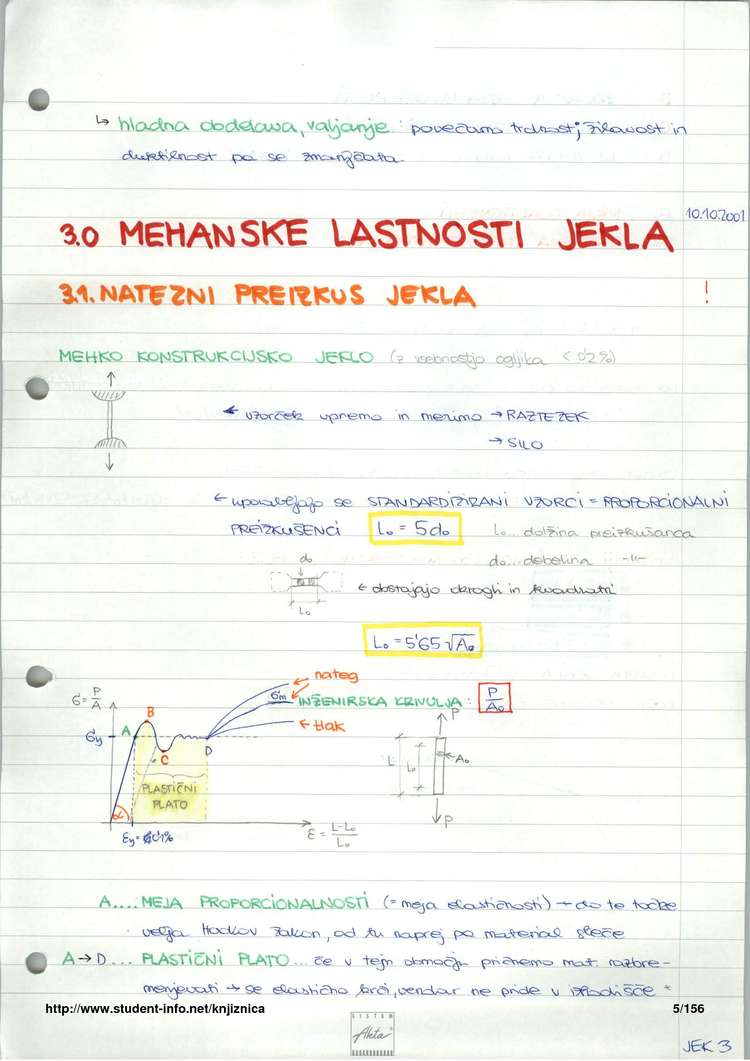 ↳ hladna obdelava, valjanje : povečamo trdnost; žilavost in
duktilnost pa se zmanjšata.
10.10.2001
3.0 MEHANSKE LASTNOSTI JEKLA
3.1. NATEZNI PREIZKUS JEKLA !
MEHKO KONSTRUKCIJSKO JEKLO (z vsebnostjo ogljika < 0'2%)
← vzorček upnemo in merimo → RAZTEZEK
→ SILO
← uporabljajo se STANDARDIZIRANI VZORCI = PROPORCIONALNI
PREIZKUŠENCI L₀ = 5d₀ L₀... dolžina preizkušanca
d₀...debelina -11-
d₀
← obstajajo okrogli in kvadratni
L₀
L₀ = 5'65 √A₀
← nateg
σ = P/A σm INŽENIRSKA KRIVULJA : P/A₀
B P
σy A ← tlak
C D L L₀ ← A₀
PLASTIČNI
PLATO
α P
εy = 0'1% ε = L-L₀/L₀
A.... MEJA PROPORCIONALNOSTI (= meja elastičnosti) → do te točke
velja Hookov zakon, od tu naprej pa material sleče
A → D ... PLASTIČNI PLATO ... če v tejm območju pričnemo mat. razbre-
menjevati → se elastično krči, vendar ne pride v izhodišče →
http://www.student-info.net/knjiznica 5/156
SISTEM
Akta
JEK 3